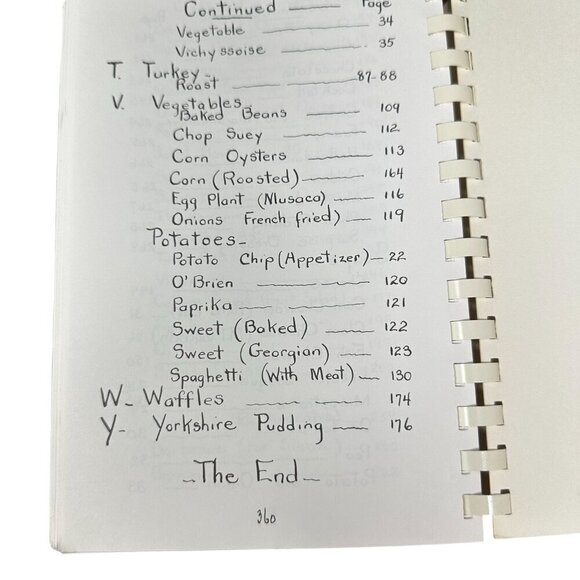 Continued Page
Vegetable 34
Vichy ssoise 35
T. Turkey-
Roast 87-88
V. Vegetables-
Baked Beans 109
Chop Suey 112
Corn Oysters 113
Corn (Roasted) 164
Egg Plant (Musaca) 116
Onions French fried) 119
Potatoes-
Potato Chip (Appetizer) 22
O'Brien 120
Paprika 121
Sweet (Baked) 122
Sweet (Georgian) 123
Spaghetti (With Meat) 130
W- Waffles 174
Y- Yorkshire Pudding 176
The End
360